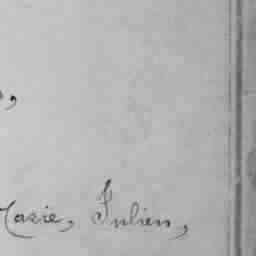 Marie, Julien,